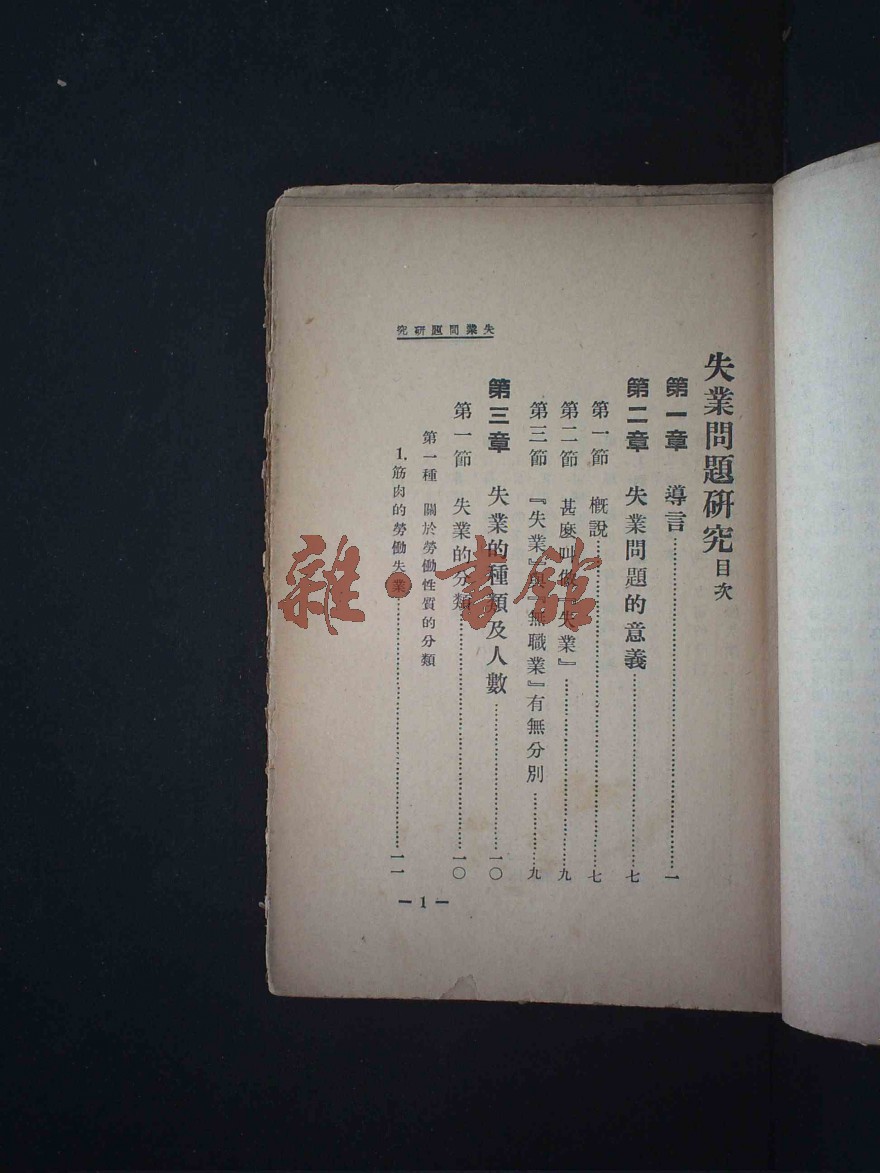 失業問題研究
失業問題研究目次
第一章　導言……一
第二章　失業問題的意義……七
第一節　概說……七
第二節　甚麼叫做『失業』……九
第三節　『失業』與『無職業』有無分別……九
第三章　失業的種類及人數……一〇
第一節　失業的分類……一〇
第一種　關於勞働性質的分類
1. 筋肉的勞働失業……一一
— 1 —
雜·書館